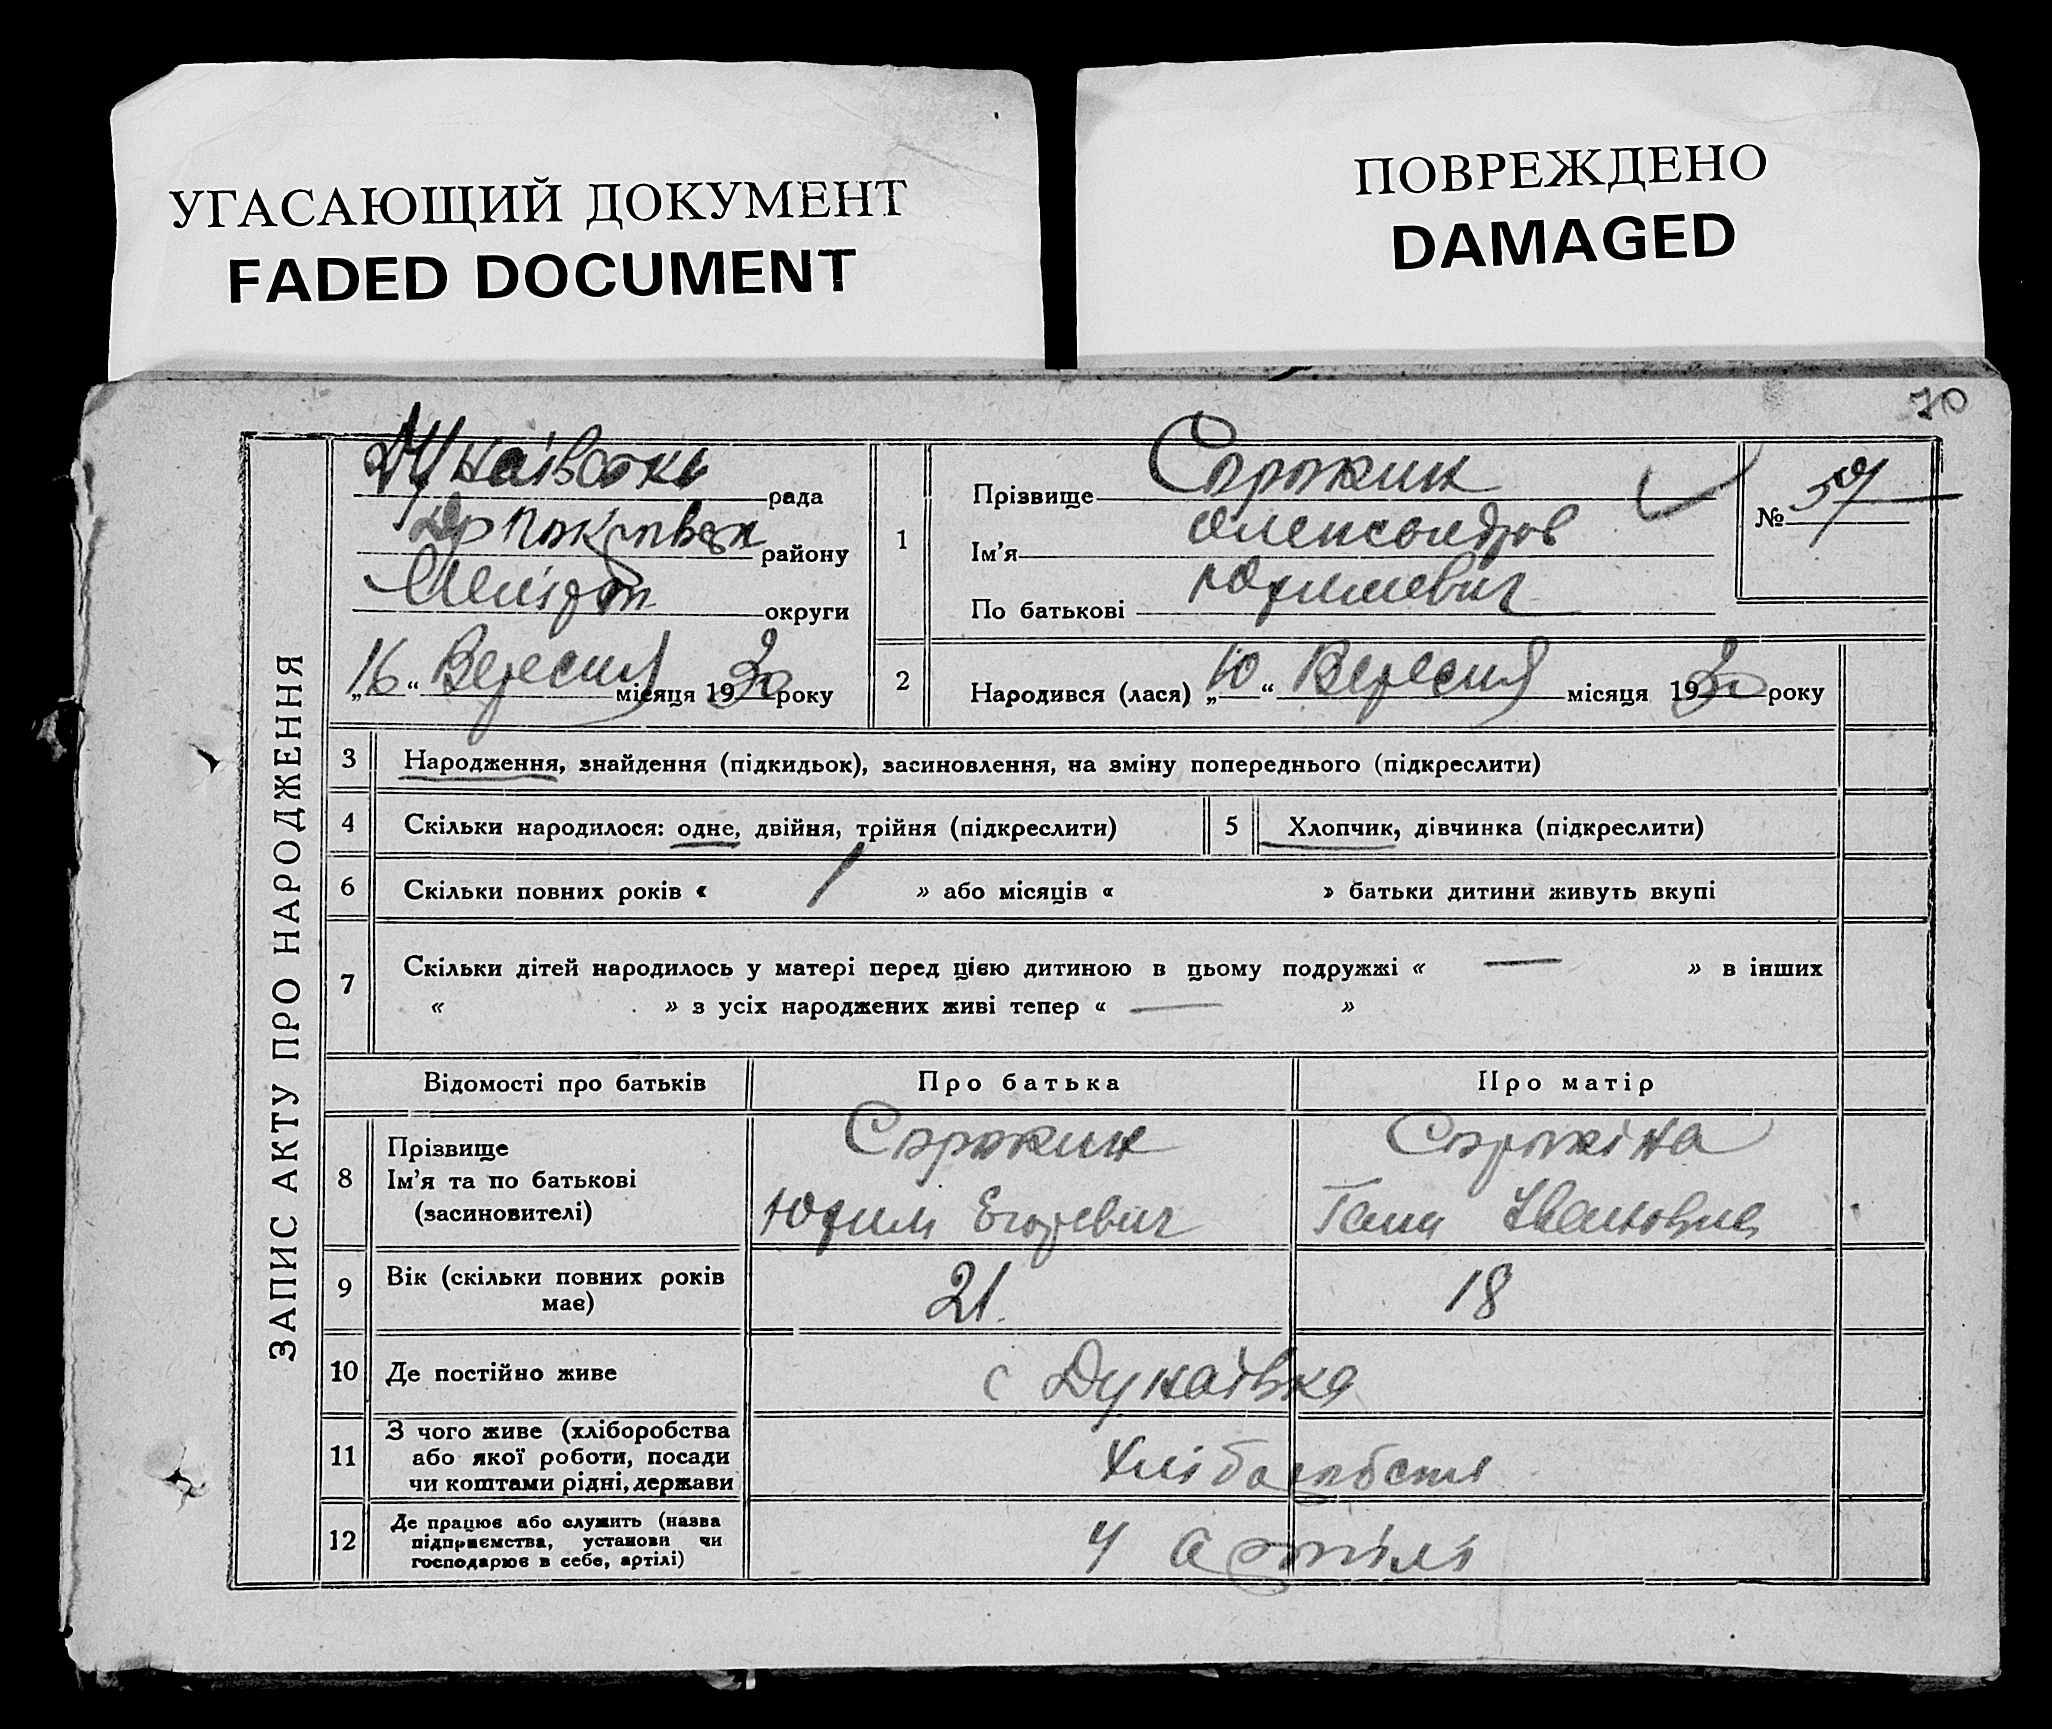 УГАСАЮЩИЙ ДОКУМЕНТ
FADED DOCUMENT
ПОВРЕЖДЕНО
DAMAGED
70
ЗАПИС АКТУ ПРО НАРОДЖЕННЯ
рада
району
округи
„16“ Вересня місяця 1930 року
1
Прізвище Сорокин
Ім'я
По батькові Юхимевич
№ 59
2
Народився (лася) „10“ Вересня місяця 1930 року
3 Народження, знайдення (підкидьок), засиновлення, на зміну попереднього (підкреслити)
4 Скільки народилося: одне, двійня, трійня (підкреслити)
5 Хлопчик, дівчинка (підкреслити)
6 Скільки повних років « 1 » або місяців « » батьки дитини живуть вкупі
7 Скільки дітей народилось у матері перед цією дитиною в цьому подружжі « — » в інших
« » з усіх народжених живі тепер « — »
Відомості про батьків Про батька Про матір
8 Прізвище
Ім'я та по батькові
(засиновителі)
Сорокин
Юхим Егоревич
Сорокіна
Ганна Ивановна
9 Вік (скільки повних років
має)
21 18
10 Де постійно живе с Дунаївка
11 З чого живе (хліборобства
або якої роботи, посади
чи коштами рідні, держави
Хліборобство
12 Де працює або служить (назва
підприємства, установи чи
господарює в себе, артілі)
У артілі